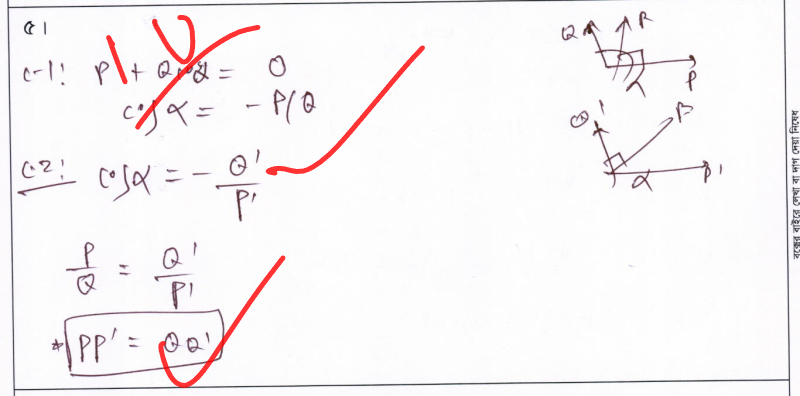 ৫।
C-1: P + Q cos α = 0
cos α = - P/Q
C-2: cos α = - Q'/P'
P/Q = Q'/P'
* PP' = QQ'
10
Q R
P
α
Q' R
α P'
বক্সের বাইরে লেখা বা দাগ দেয়া নিষেধ